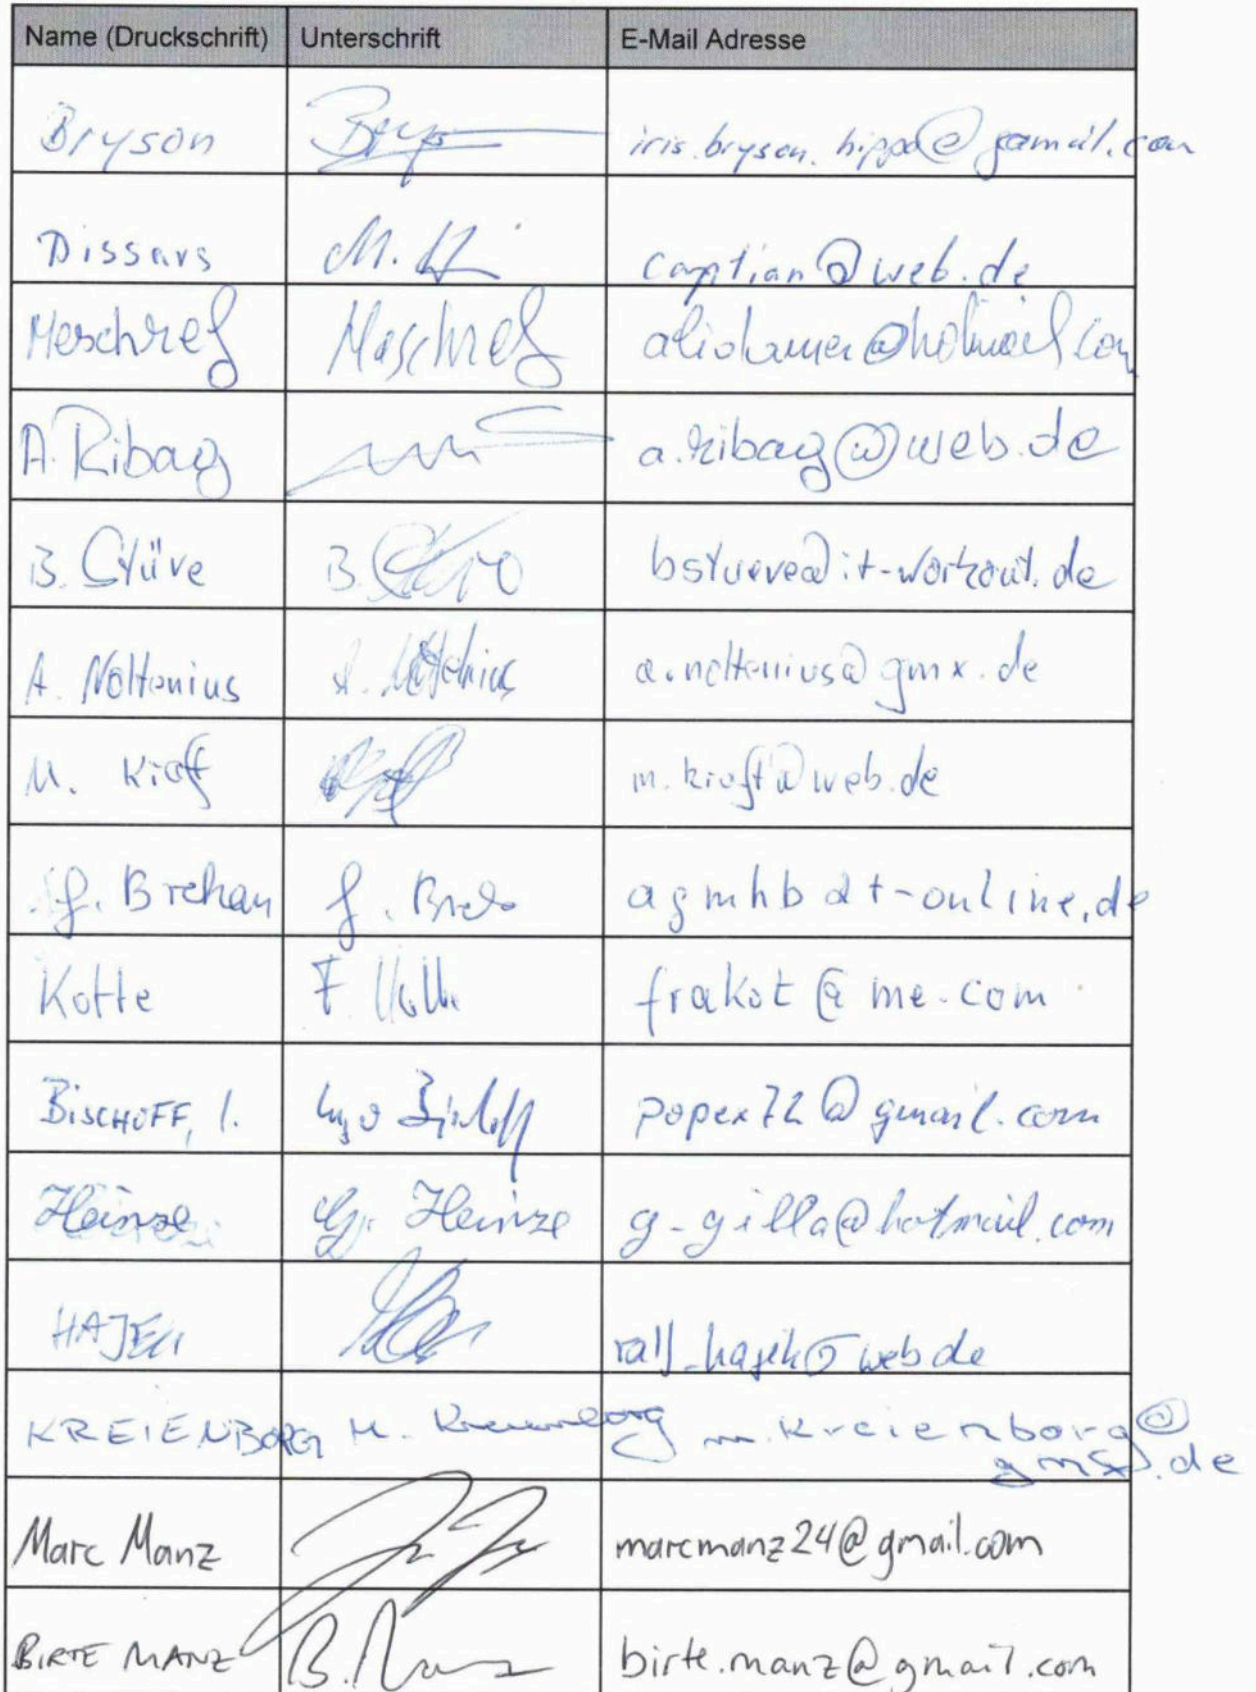 Name (Druckschrift) Unterschrift E-Mail Adresse
Bryson iris.bryson.hippo@gamail.com
Dissars captian@web.de
Meschref Meschref
A. Ribag a.ribag@web.de
B. Stüve B. bstueve@it-workout.de
A. Noltenius A. Noltenius a.noltenius@gmx.de
M. Kraft m.kraft@web.de
Brehan agmhb@t-online.de
Kotte F. Kotte frakot@me.com
BISCHOFF, I. Ingo Bischoff popex72@gmail.com
Heinze G. Heinze g-gilla@hotmail.com
HAJEN ralf_hajen@web.de
KREIENBORG M. Kreienborg m.kreienborg@
gmx.de
Marc Manz marcmanz24@gmail.com
BIRTE MANZ B. Manz birte.manz@gmail.com